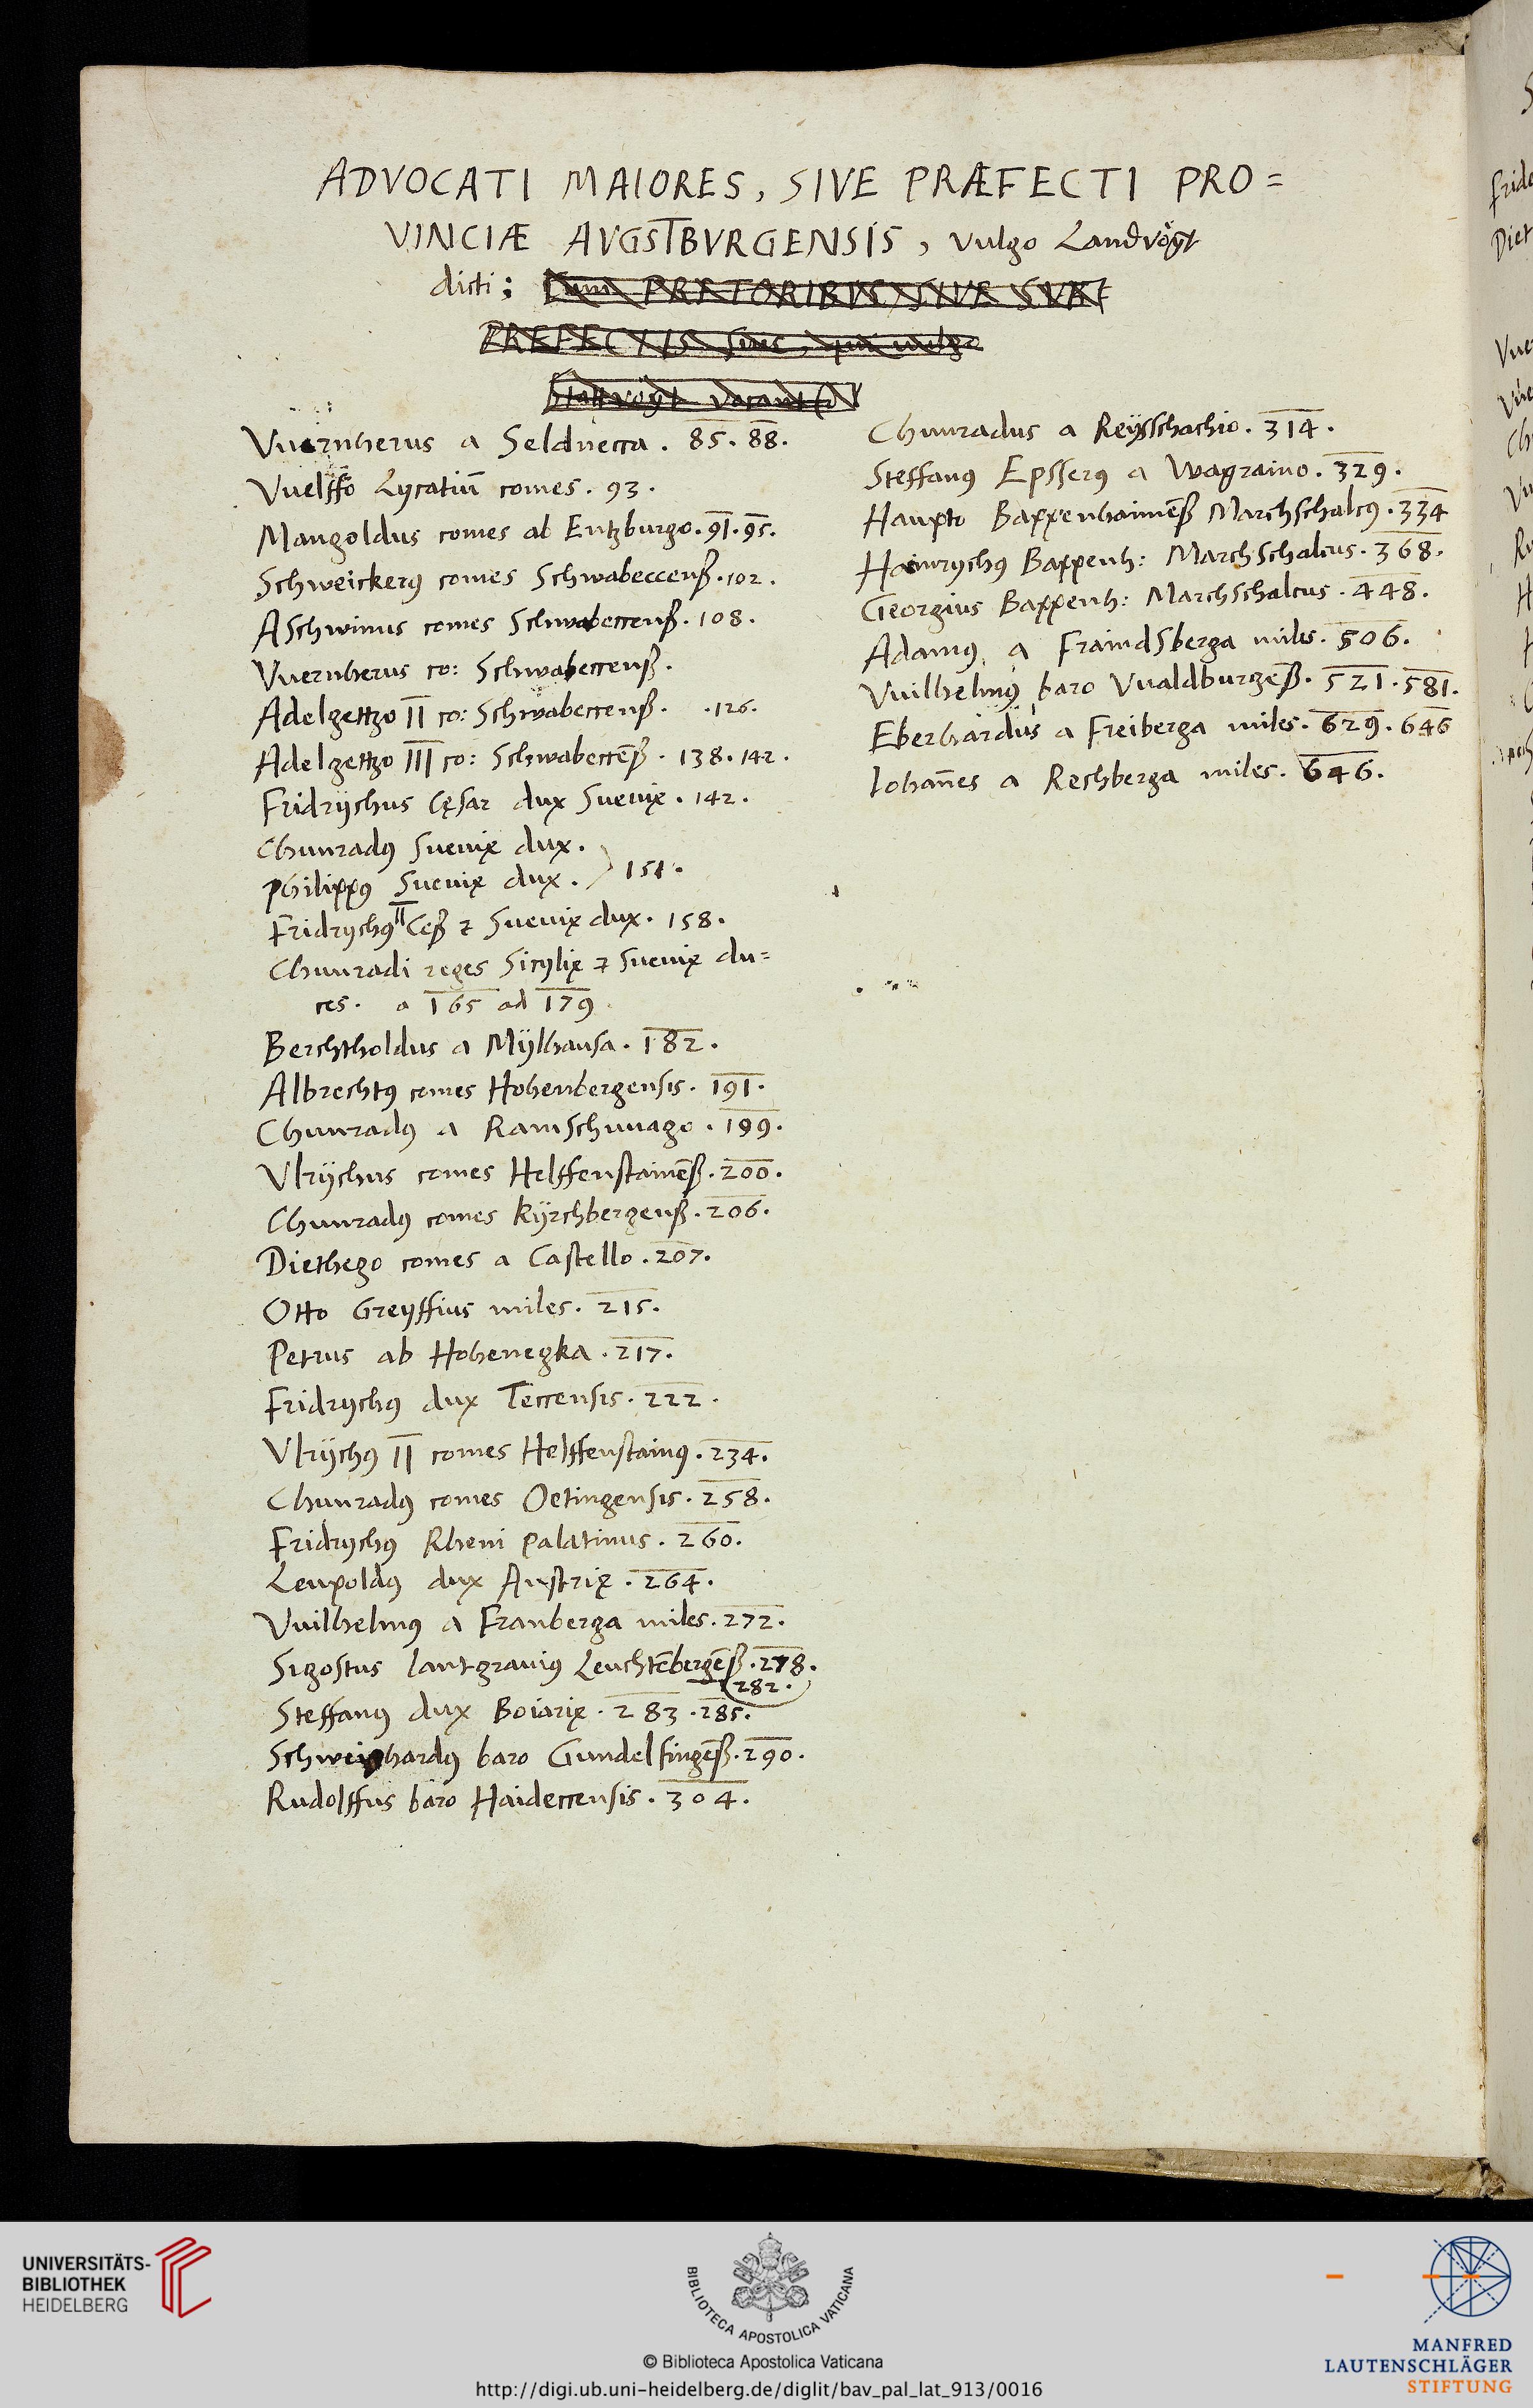 ADVOCATI MAIORES, SIVE PRÆFECTI PRO=
VINCIÆ AVGSTBVRGENSIS, vulgo Landvögt
dicti;
Vuernherus a Seldnecca. 85. 88.
Vuelffo Lycatiū comes. 93.
Mangoldus comes ab Entzburgo. 91. 95.
Schweickerꝰ comes Schwabeccenß. 102.
ASchwinus comes Schwabeccenß. 108.
Vuernherus co: Schwabeccenß.
Adelgettzo II co: Schwabeccenß. 126.
Adelgettzo III co: Schwabeccēß. 138. 142.
Fridrÿchus Cęsar dux Sueuię. 142.
Chunradꝰ Sueuię dux.
Philippꝰ Sueuię dux. 151.
FridrychꝰII Ceß & Sueuię dux. 158.
Chunradi reges Sicylię & Sueuię du=
ces. a 165 ad 179
Berchtholdus a Mÿlhausa. 182.
Albrechtꝰ comes Hohenbergensis. 191.
Chunradꝰ a Ramschuuago. 199.
Vlrÿchus comes Helffenstainēß. 200.
Chunradꝰ comes Kÿrchbergenß. 206.
Diethego comes a Castello. 207.
Otto Greyffius miles. 215.
Petrus ab Hohenegka. 217.
Fridrychꝰ dux Teccensis. 222.
Vlrÿchꝰ II comes Helffenstainꝰ. 234.
Chunradꝰ comes Oetingensis. 258.
Fridrychꝰ Rheni Palatinus. 260.
Leupoldꝰ dux Austrię. 264.
Vuilhelmꝰ a Franberga miles. 272.
Sigostus lantgrauiꝰ Leuchtēbergēß. 278.
282.
Steffanꝰ dux Boiarię. 283. 285.
Schweighardꝰ baro Gundelfingēß. 290.
Rudolffus baro Haideccensis. 304.
Chunradus a Reÿsschachio. 314.
Steffanꝰ Epsserꝰ a Wagraino. 329.
Haupto Bappenhaimēß Marchschalcꝰ. 334
Hainrychꝰ Bappenh: Marchschalcus. 368.
Georgius Bappenh: Marchschalcus. 448.
Adamꝰ a Fraindsberga miles. 506.
Vuilhelmꝰ baro Vualdburgēß. 521. 581.
Eberhardus a Freiberga miles. 629. 646
Iohañes a Rechberga miles. 646.
UNIVERSITÄTS-
BIBLIOTHEK
HEIDELBERG
BIBLIOTECA APOSTOLICA VATICANA
© Biblioteca Apostolica Vaticana
http://digi.ub.uni-heidelberg.de/diglit/bav_pal_lat_913/0016
MANFRED
LAUTENSCHLÄGER
STIFTUNG